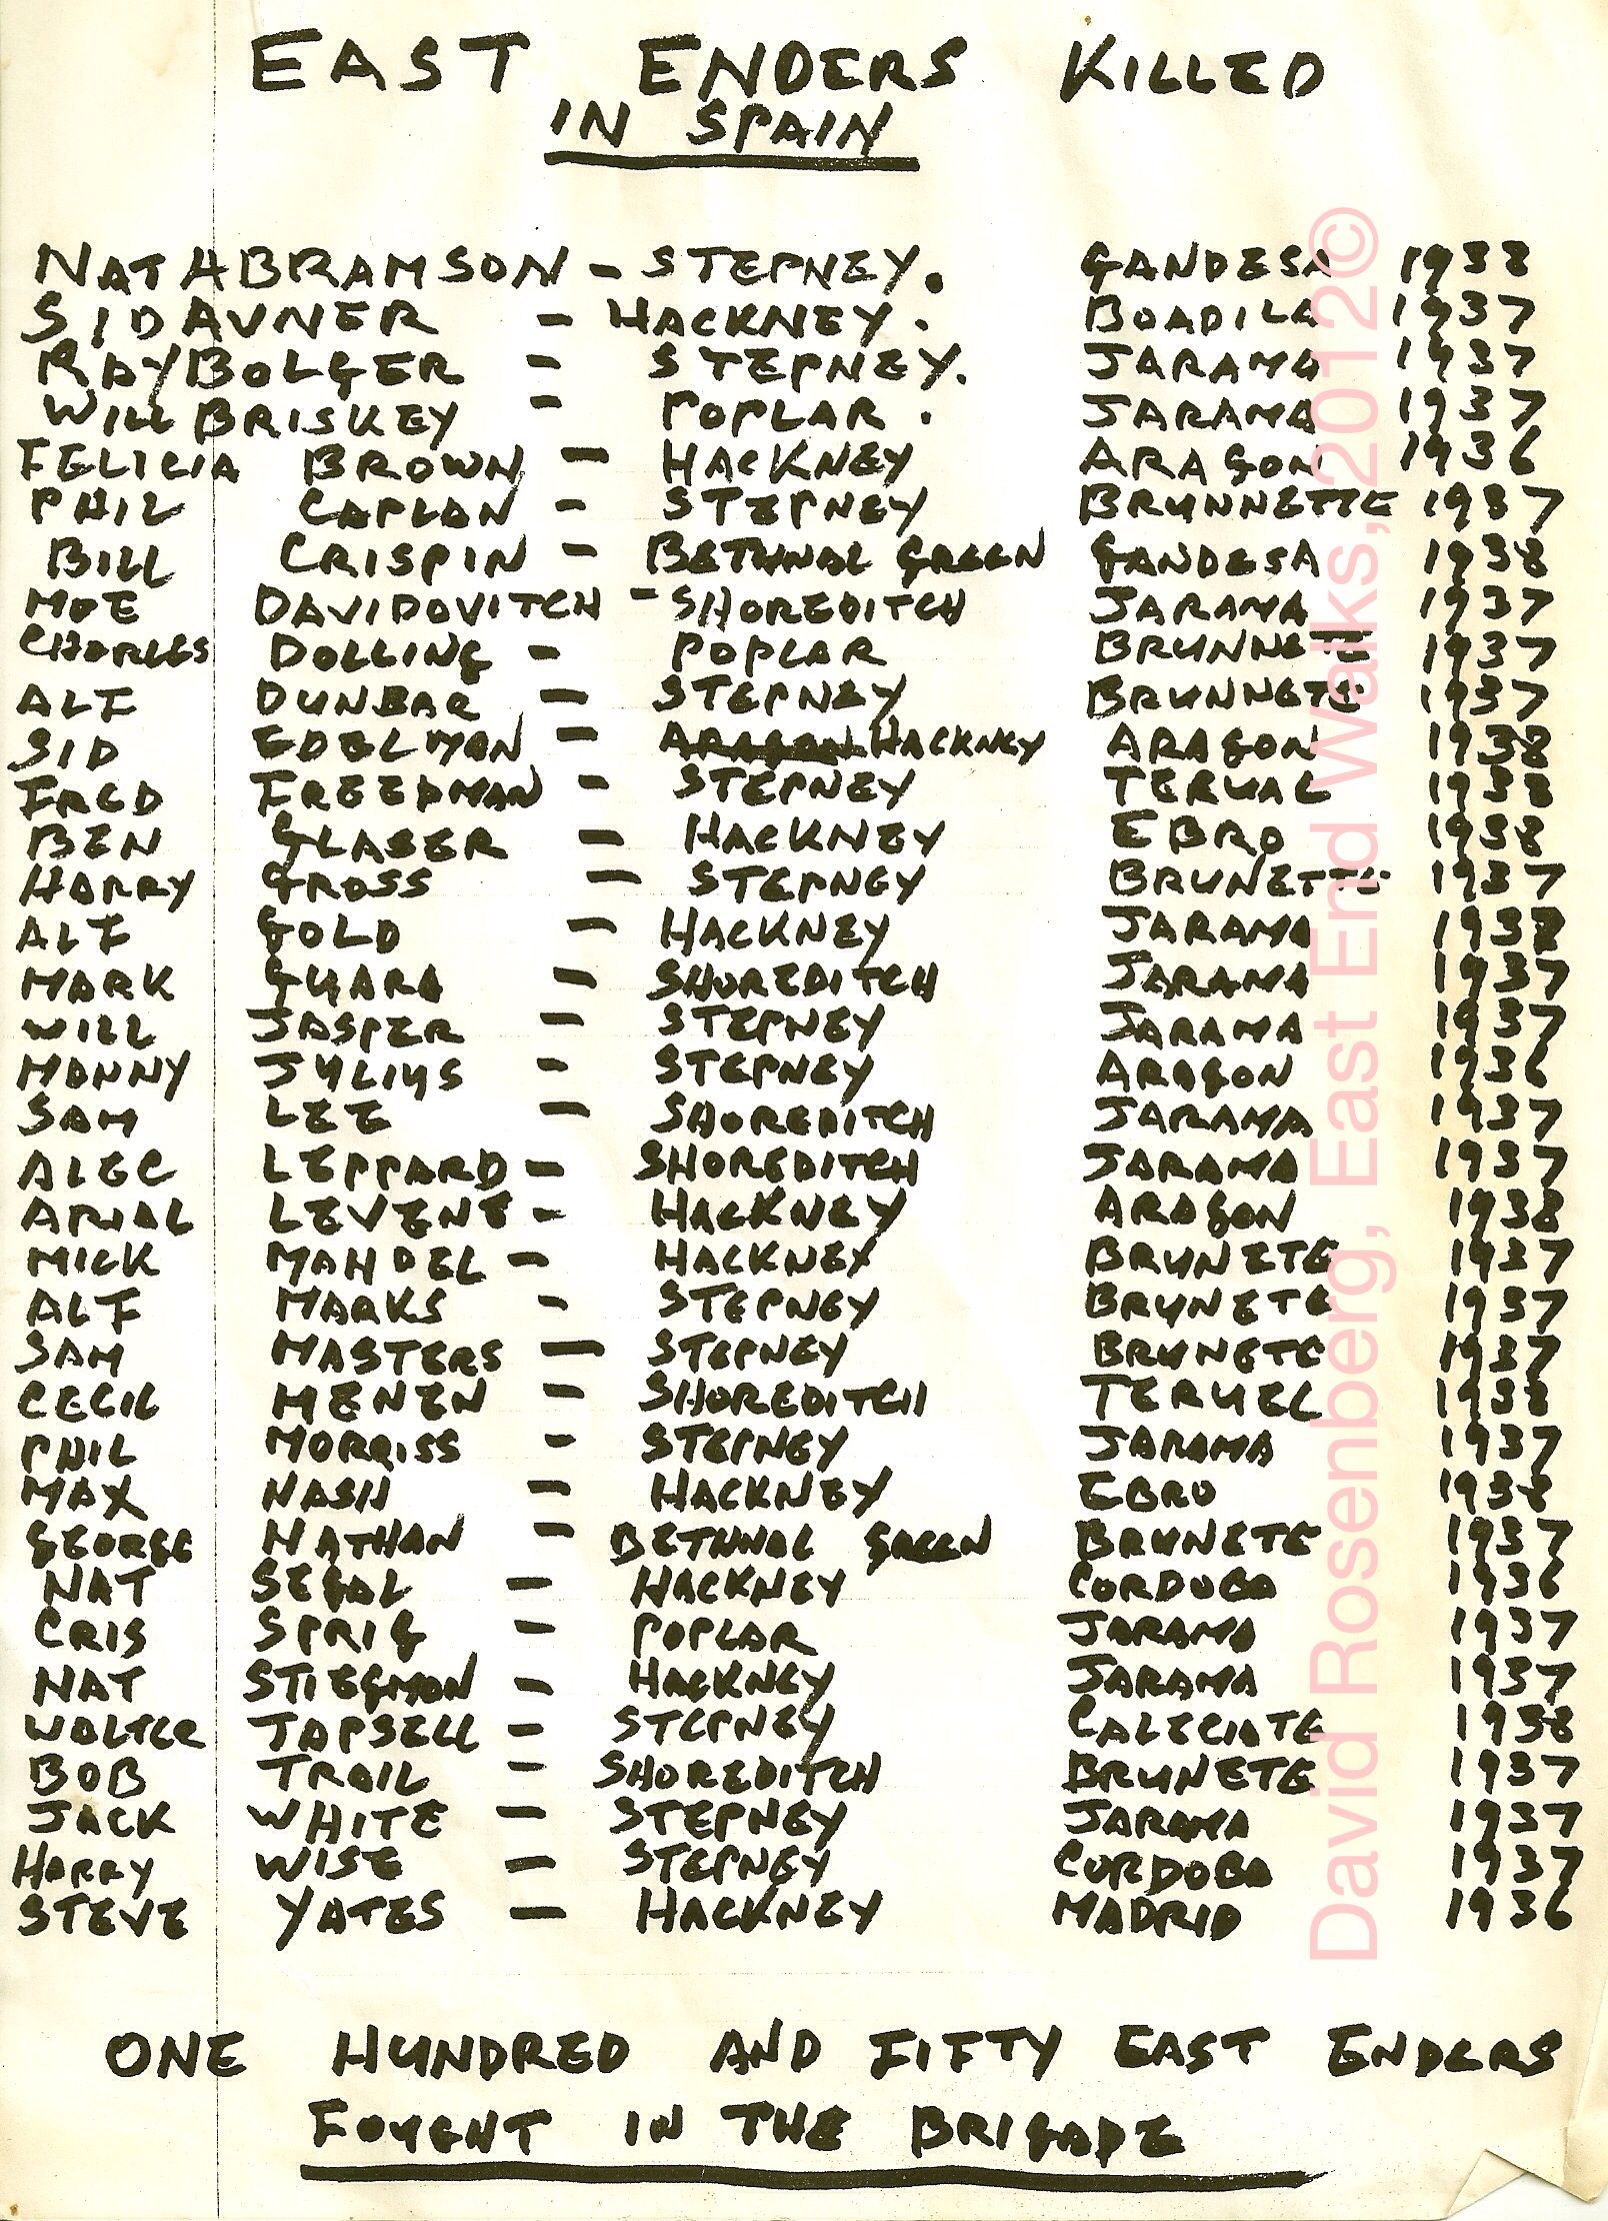 EAST ENDERS KILLED
IN SPAIN
NAT ABRAMSON - STEPNEY. GANDESA 1938
SID AVNER - HACKNEY. BOADILA 1937
RAY BOLGER - STEPNEY. JARAMA 1937
WILL BRISKEY - POPLAR. JARAMA 1937
FELICIA BROWN - HACKNEY ARAGON 1936
PHIL CAPLAN - STEPNEY BRUNNETTE 1937
BILL CRISPIN - BETHNAL GREEN GANDESA 1938
MOE DAVIDOVITCH - SHOREDITCH JARAMA 1937
CHARLES DOLLING - POPLAR BRUNNETE 1937
ALF DUNBAR - STEPNEY BRUNNETE 1937
SID EDELMAN - HACKNEY ARAGON 1938
FRED FREEDMAN - STEPNEY TERUAL 1938
BEN GLASER - HACKNEY EBRO 1938
HARRY GROSS - STEPNEY BRUNETTE 1937
ALF GOLD - HACKNEY JARAMA
MARK GURAR - SHOREDITCH JARAMA 1937
WILL JASPER - STEPNEY JARAMA 1937
MANNY JULIUS - STEPNEY ARAGON 1936
SAM LEE - SHOREDITCH JARAMA 1937
ALEC LEPPARD - SHOREDITCH JARAMA 1937
LEVENE - HACKNEY ARAGON 1938
MICK MANDEL - HACKNEY BRUNETE 1937
ALF MARKS - STEPNEY BRUNETE 1937
SAM MASTERS - STEPNEY BRUNETE 1937
CECIL MENEN - SHOREDITCH TERUEL 1938
PHIL MORRISS - STEPNEY JARAMA 1937
MAX NASH - HACKNEY EBRO 1938
GEORGE NATHAN - BETHNAL GREEN BRUNETE 1937
NAT SEGAL - HACKNEY CORDOBA 1936
CRIS SPRIG - POPLAR JARAMA 1937
NAT STIEGMAN - HACKNEY JARAMA 1937
WALTER TAPSELL - STEPNEY CALECIATE 1938
BOB TRAIL - SHOREDITCH BRUNETE 1937
JACK WHITE - STEPNEY JARAMA 1937
HARRY WISE - STEPNEY CORDOBA 1937
STEVE YATES - HACKNEY MADRID 1936
ONE HUNDRED AND FIFTY EAST ENDERS
FOUGHT IN THE BRIGADE
David Rosenberg, East End Walks, 2012©